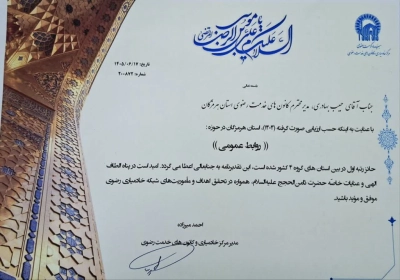 السلام علیک یا علی بن موسی الرضا
تاریخ: ۱۴۰۵/۰۶/۱۷
شماره: ۲۰۰۸۷۴
باسمه تعالی
جناب آقای حبیب بهادری، مدیر محترم کانون های خدمت رضوی استان هرمزگان
با عنایت به اینکه حسب ارزیابی صورت گرفته (۱۴۰۴)، استان هرمزگان در حوزه :
(( روابط عمومی ))
حائز رتبه اول در بین استان های گروه ۲ کشور شده است، این تقدیرنامه به جنابعالی اعطا می گردد. امید است در پناه الطاف
الهی و عنایات خاصه حضرت ثامن‌الحجج علیه‌السلام، همواره در تحقق اهداف و مأموریت‌های شبکه خادمیاری رضوی
موفق و مؤید باشید.
احمد میرزاده
مدیر مرکز خادمیاری و کانون های خدمت رضوی